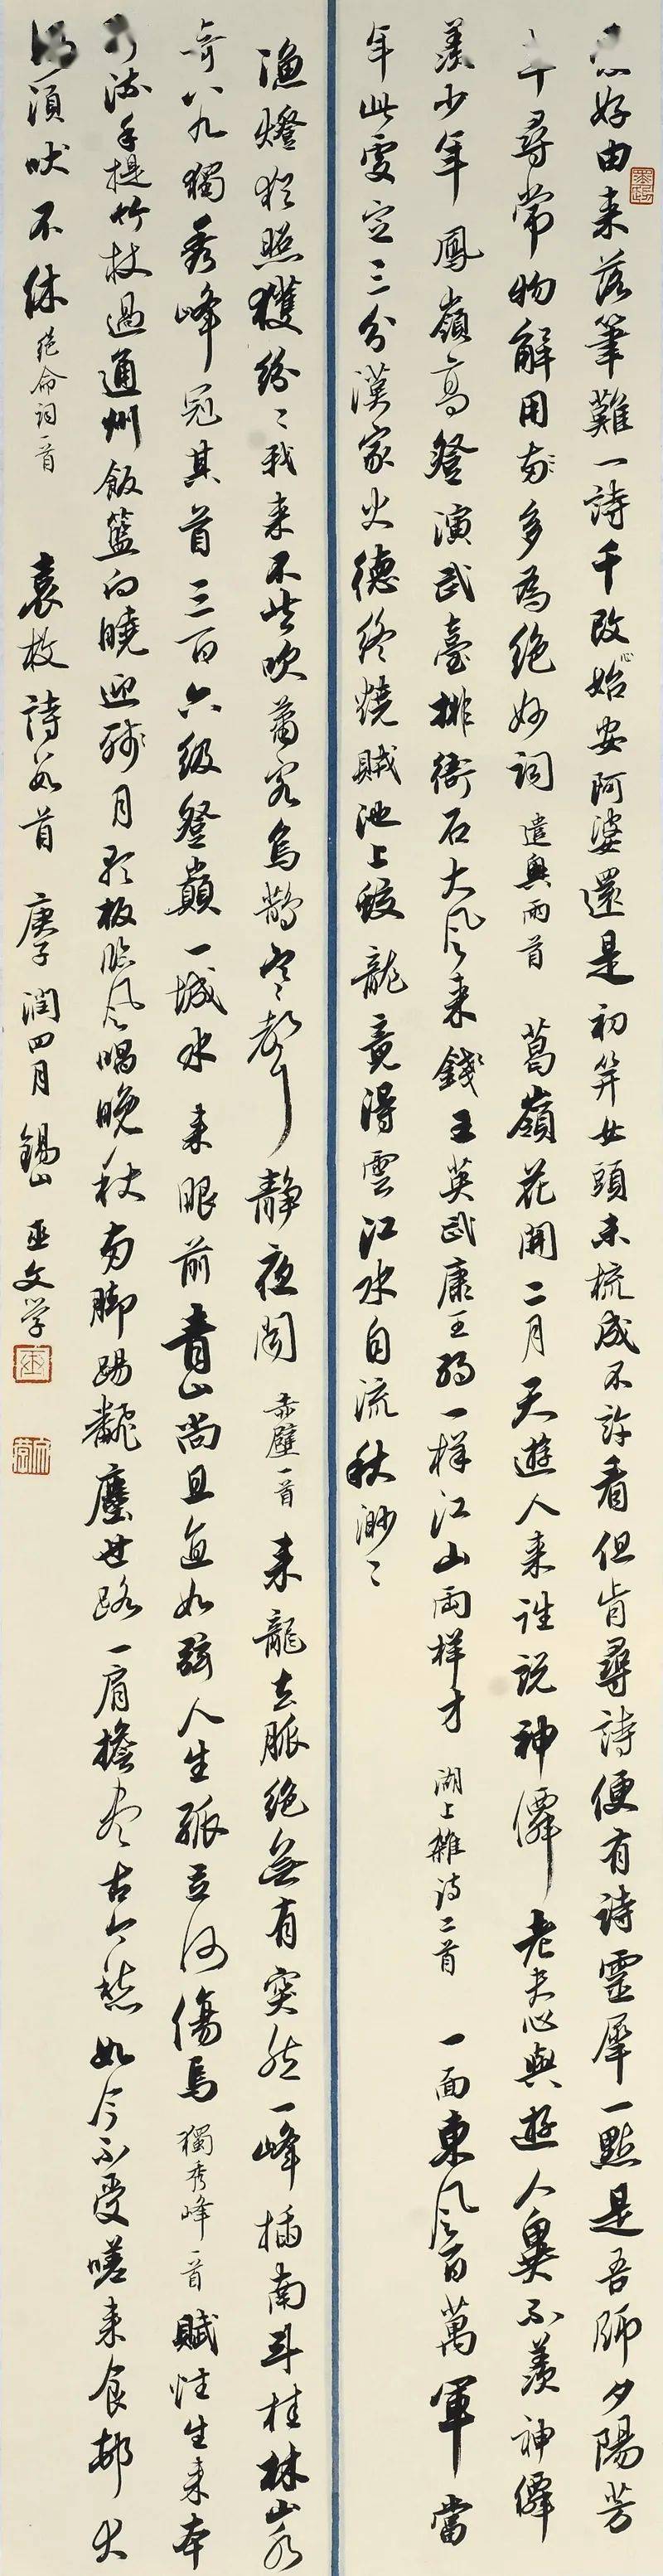 好由来落筆難一詩千改心始安阿婆還是初笄女頭未梳成不許看但肯尋詩便有詩靈犀一點是吾師夕陽芳
尋常物解用多為絶妙詞遣興兩首 葛嶺花開二月天遊人来往説神僊老夫心與遊人異不羨神僊
羨少年 鳳嶺高登演武臺排衙石大風来錢王英武康王弱一樣江山兩樣才 湖上雜詩二首 一面東風百萬軍當
年此處定三分漢家火德終燒賊池上蛟龍竟得雲江水自流秋渺〻
漁燈猶照獲紛〻我来不共吹簫客烏鵲寒聲靜夜聞 赤壁一首 来龍去脈絶無有突然一峰插南斗桂林山水
奇八九獨秀峰冠其首三百六級登巔一城水来眼前青山尚且直如弦人生孤立何傷焉 獨秀峰一首 賦性生来本
流手提竹杖過通州飯籃向曉迎殘月歌板臨風唱晚秋兩脚踢翻塵世路一肩擔盡古今愁如今不受嗟来食村犬
須吠不休 絶命詞一首 袁枚詩數首 庚子閏四月 錫山 巫文学